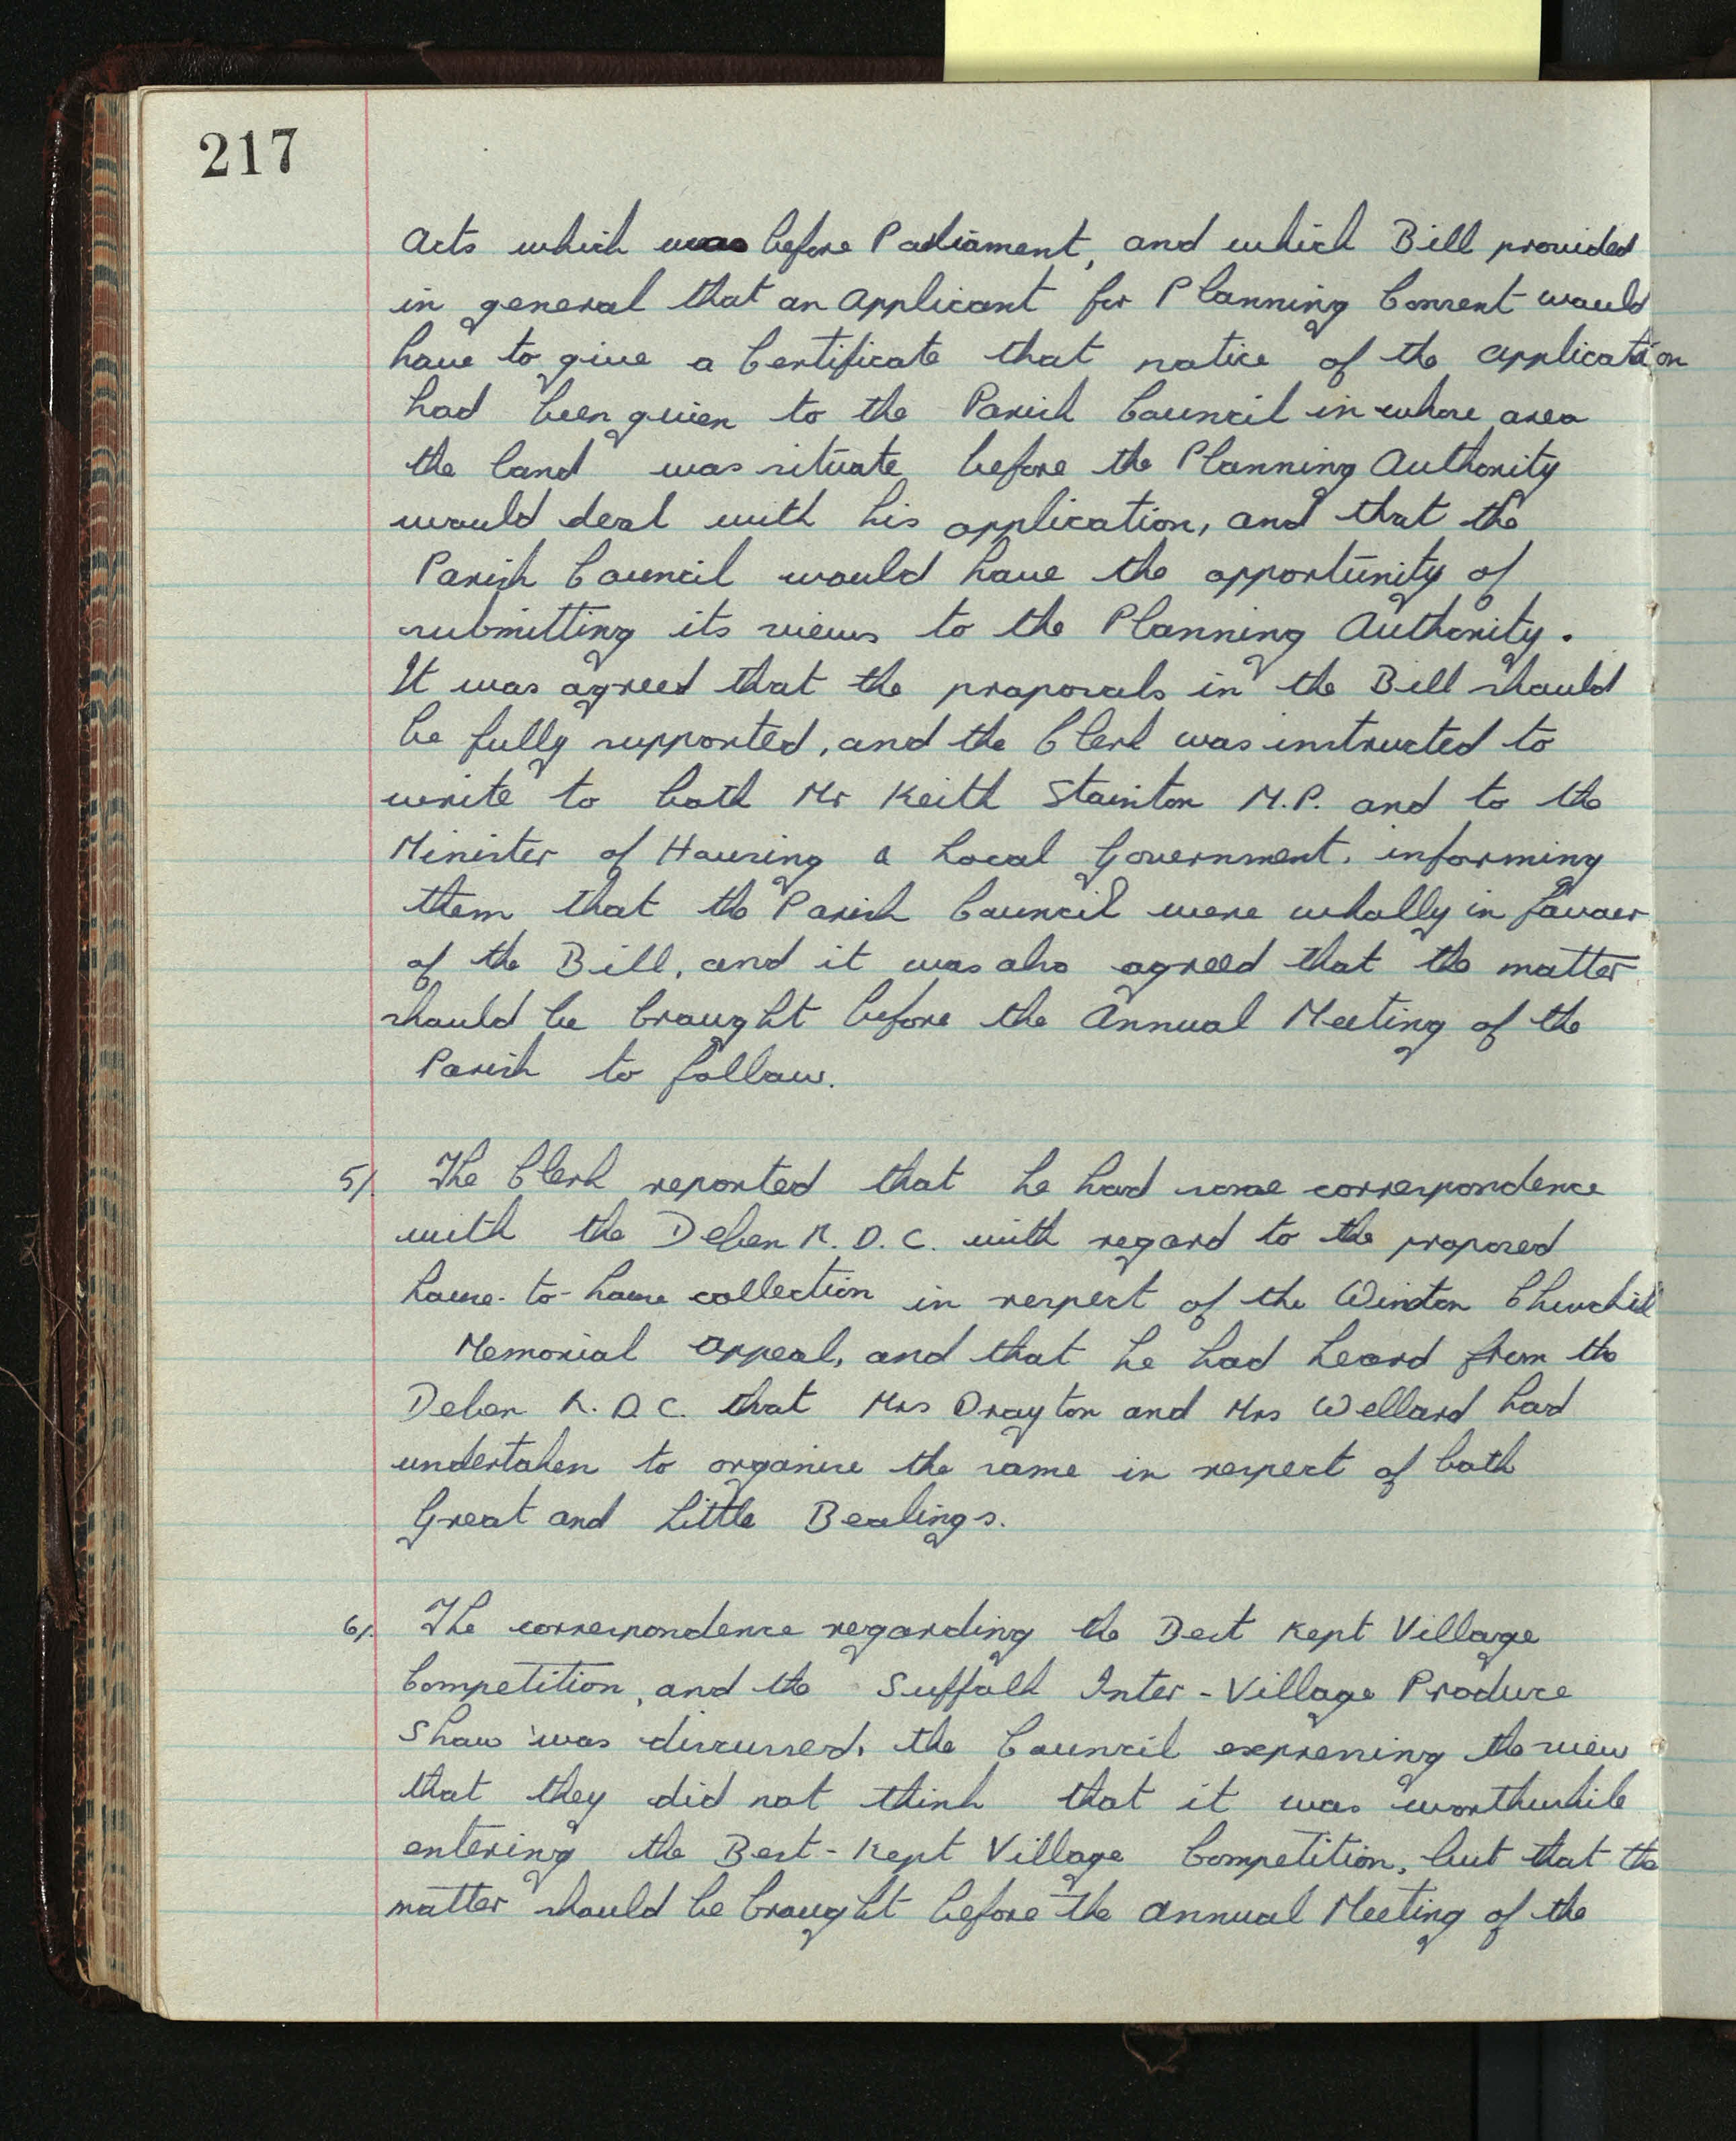 217
Acts which was before Parliament, and which Bill provided
in general that an Applicant for Planning Consent would
have to give a Certificate that notice of the application
had been given to the Parish Council in whose area
the land was situate before the Planning Authority
would deal with his application, and that the
Parish Council would have the opportunity of
submitting its views to the Planning Authority.
It was agreed that the proposals in the Bill should
be fully supported, and the Clerk was instructed to
write to both Mr Keith Stainton M.P. and to the
Minister of Housing & Local Government, informing
them that the Parish Council were wholly in favour
of the Bill, and it was also agreed that the matter
should be brought before the Annual Meeting of the
Parish to follow.
5/. The Clerk reported that he had some correspondence
with the Deben R.D.C. with regard to the proposed
house-to-house collection in respect of the Winston Churchill
Memorial Appeal, and that he had heard from the
Deben R.D.C. that Mrs Drayton and Mrs Wellard had
undertaken to organise the same in respect of both
Great and Little Bealings.
6/. The correspondence regarding the Best Kept Village
Competition, and the Suffolk Inter-Village Produce
Show was discussed, the Council expressing the view
that they did not think that it was worthwhile
entering the Best-Kept Village Competition, but that the
matter should be brought before the Annual Meeting of the